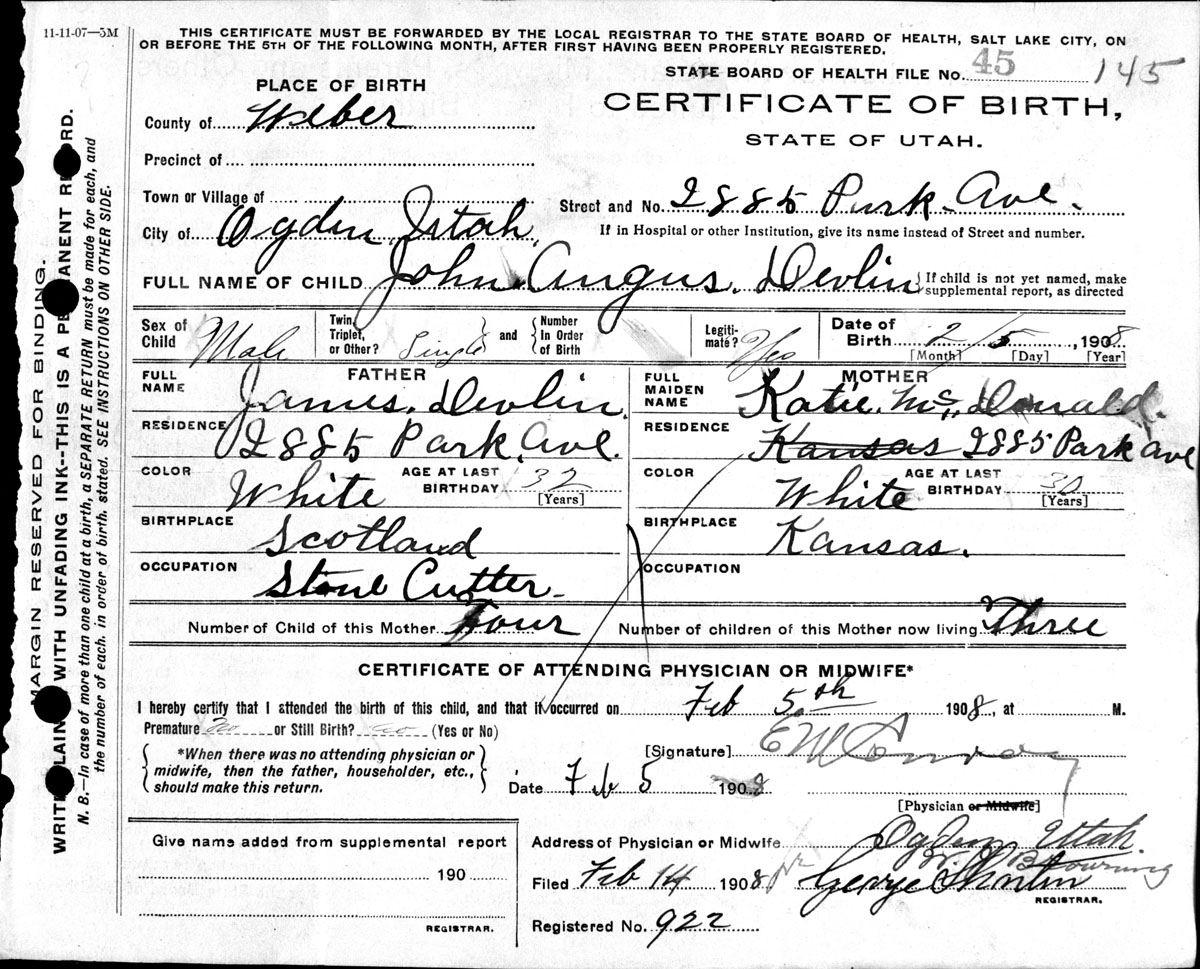 11-11-07—5M
THIS CERTIFICATE MUST BE FORWARDED BY THE LOCAL REGISTRAR TO THE STATE BOARD OF HEALTH, SALT LAKE CITY, ON
OR BEFORE THE 5TH OF THE FOLLOWING MONTH, AFTER FIRST HAVING BEEN PROPERLY REGISTERED.
STATE BOARD OF HEALTH FILE No. 45 145
PLACE OF BIRTH
CERTIFICATE OF BIRTH,
STATE OF UTAH.
County of Weber
Precinct of
Town or Village of
Street and No. 2885 Park Ave.
City of Ogden Utah
If in Hospital or other Institution, give its name instead of Street and number.
FULL NAME OF CHILD John Angus Devlin { If child is not yet named, make
supplemental report, as directed
Sex of Child Male
Twin, Triplet, or Other? Single } and { Number In Order of Birth
Legiti- mate? Yes
Date of Birth 2 / 5, 1908
[Month] [Day] [Year]
FATHER
FULL NAME James Devlin
RESIDENCE 2885 Park Ave.
COLOR White AGE AT LAST BIRTHDAY 32
[Years]
BIRTHPLACE Scotland
OCCUPATION Stone Cutter
MOTHER
FULL MAIDEN NAME Katie McDonald.
RESIDENCE Kansas 2885 Park Ave
COLOR White AGE AT LAST BIRTHDAY 30
[Years]
BIRTHPLACE Kansas.
OCCUPATION
Number of Child of this Mother Four Number of children of this Mother now living Three
CERTIFICATE OF ATTENDING PHYSICIAN OR MIDWIFE*
I hereby certify that I attended the birth of this child, and that it occurred on Feb 5th 1908, at M.
Premature No or Still Birth? (Yes or No)
{ *When there was no attending physician or
midwife, then the father, householder, etc.,
should make this return. }
[Signature] E M Conroy
Date Feb 5 1908
[Physician or Midwife]
Give name added from supplemental report
190
REGISTRAR.
Address of Physician or Midwife Ogden Utah.
W. Browning
Filed Feb 14 1908 George Shorten
REGISTRAR.
Registered No. 922
MARGIN RESERVED FOR BINDING.
WRITE PLAINLY WITH UNFADING INK--THIS IS A PERMANENT RECORD.
N. B.—In case of more than one child at a birth, a SEPARATE RETURN must be made for each, and
the number of each, in order of birth, stated. SEE INSTRUCTIONS ON OTHER SIDE.